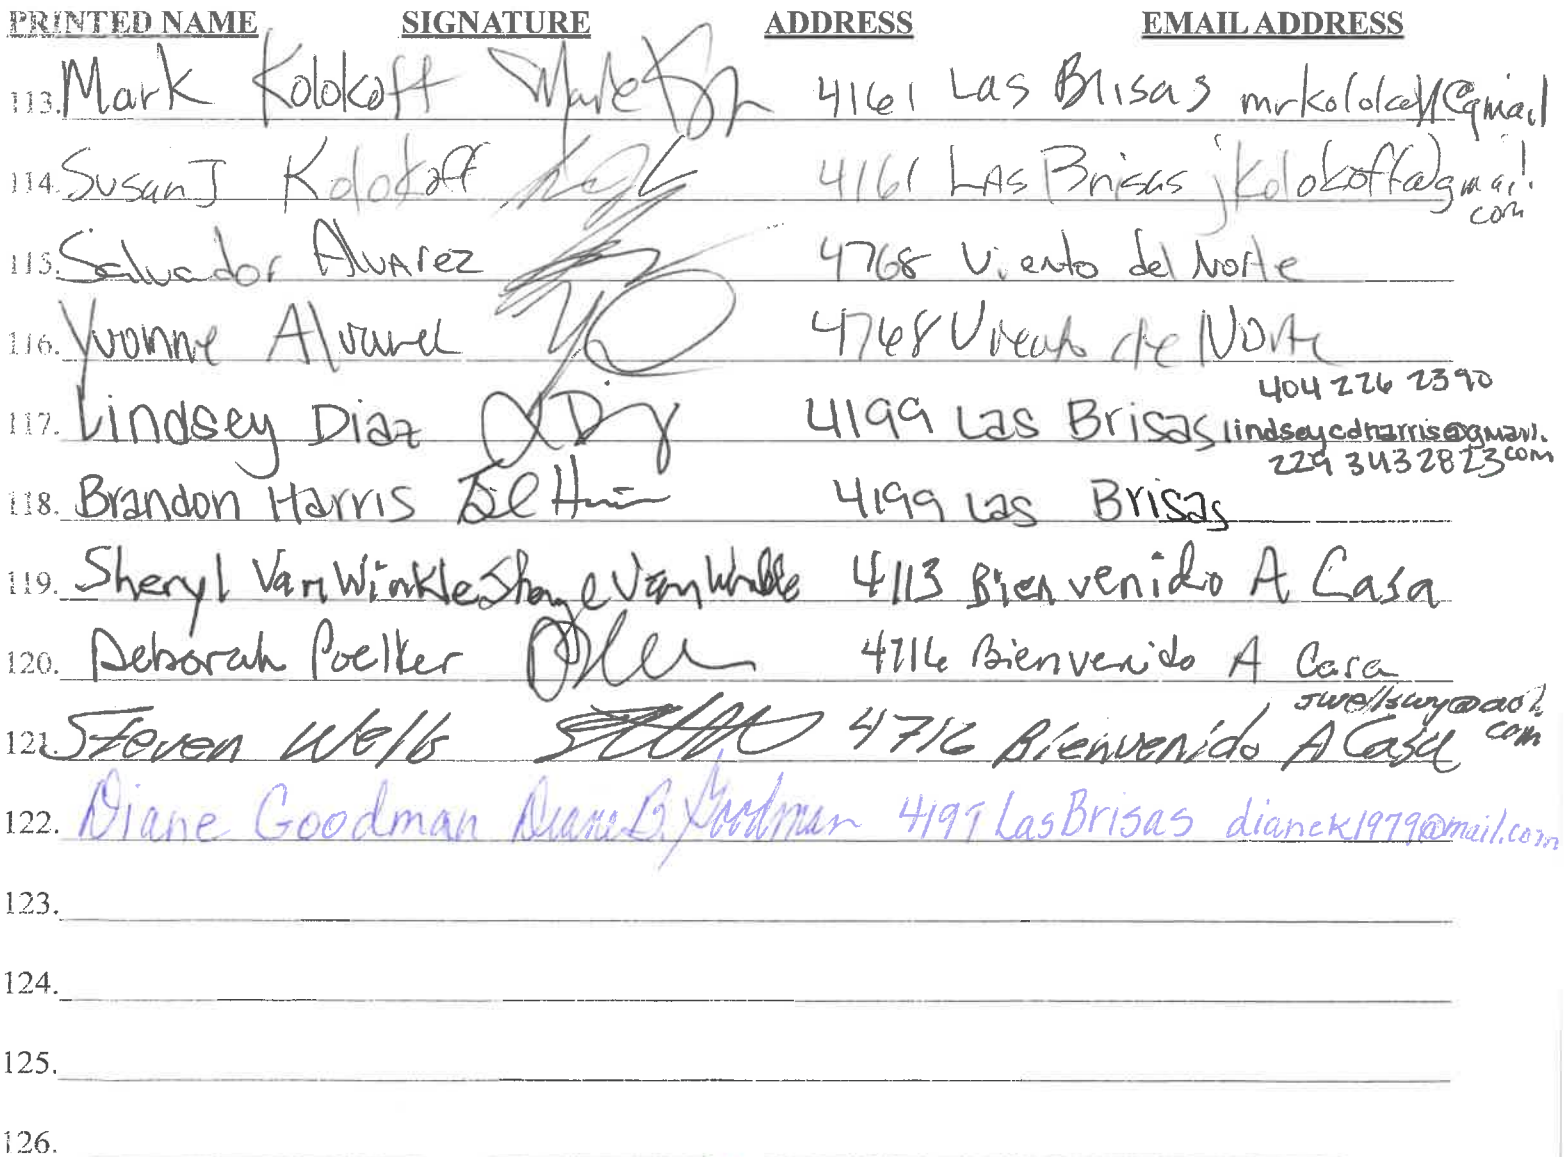 PRINTED NAME SIGNATURE ADDRESS EMAIL ADDRESS
113. Mark Kolokoff Mark 4161 Las Brisas mrkolokoff@gmail
114. Susan J Kolokoff 4161 LAs Brisas jkolokoff@gmail.
com
115. Salvador Alvarez 4768 Viento del Norte
116. Yvonne Alvarez 4768 Viento de Norte
404 226 2390
117. Lindsey Diaz 4199 Las Brisas lindseycdharris@gmail.
com
229 3432823
118. Brandon Harris 4199 Las Brisas
119. Sheryl VanWinkle Sheryl VanWinkle 4113 Bienvenido A Casa
120. Deborah Poelker 4716 Bienvenido A Casa
swellswy@aol.
com
121. Steven Wells 4716 Bienvenido A Casa
122. Diane Goodman Diane B. Goodman 4199 Las Brisas dianek1979@mail.com
123.
124.
125.
126.